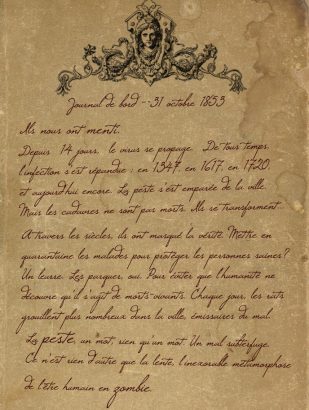 Journal de bord - 31 octobre 1833
Ils nous ont menti.
Depuis 14 jours, le virus se propage. De tous temps,
l'infection s'est répandue : en 1347, en 1617, en 1720,
et aujourd'hui encore. La peste s'est emparée de la ville.
Mais les cadavres ne sont pas morts. Ils se transforment.
A travers les siècles, ils ont masqué la vérité. Mettre en
quarantaine les malades pour protéger les personnes saines ?
Un leurre. Les parquer, oui. Pour éviter que l'humanité ne
découvre qu'il s'agit de morts-vivants. Chaque jour, les rats
grouillent plus nombreux dans la ville, émissaires du mal.
La peste, un mot, rien qu'un mot. Un mal subterfuge.
Ce n'est rien d'autre que la lente, l'inexorable métamorphose
de l'être humain en zombie.